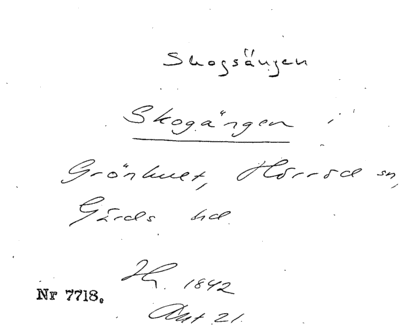 Skogsängen
Skogängen i
Grönhult, Hörröd sn,
Gärds hd
1842
Akt 21.
Nr 7718.